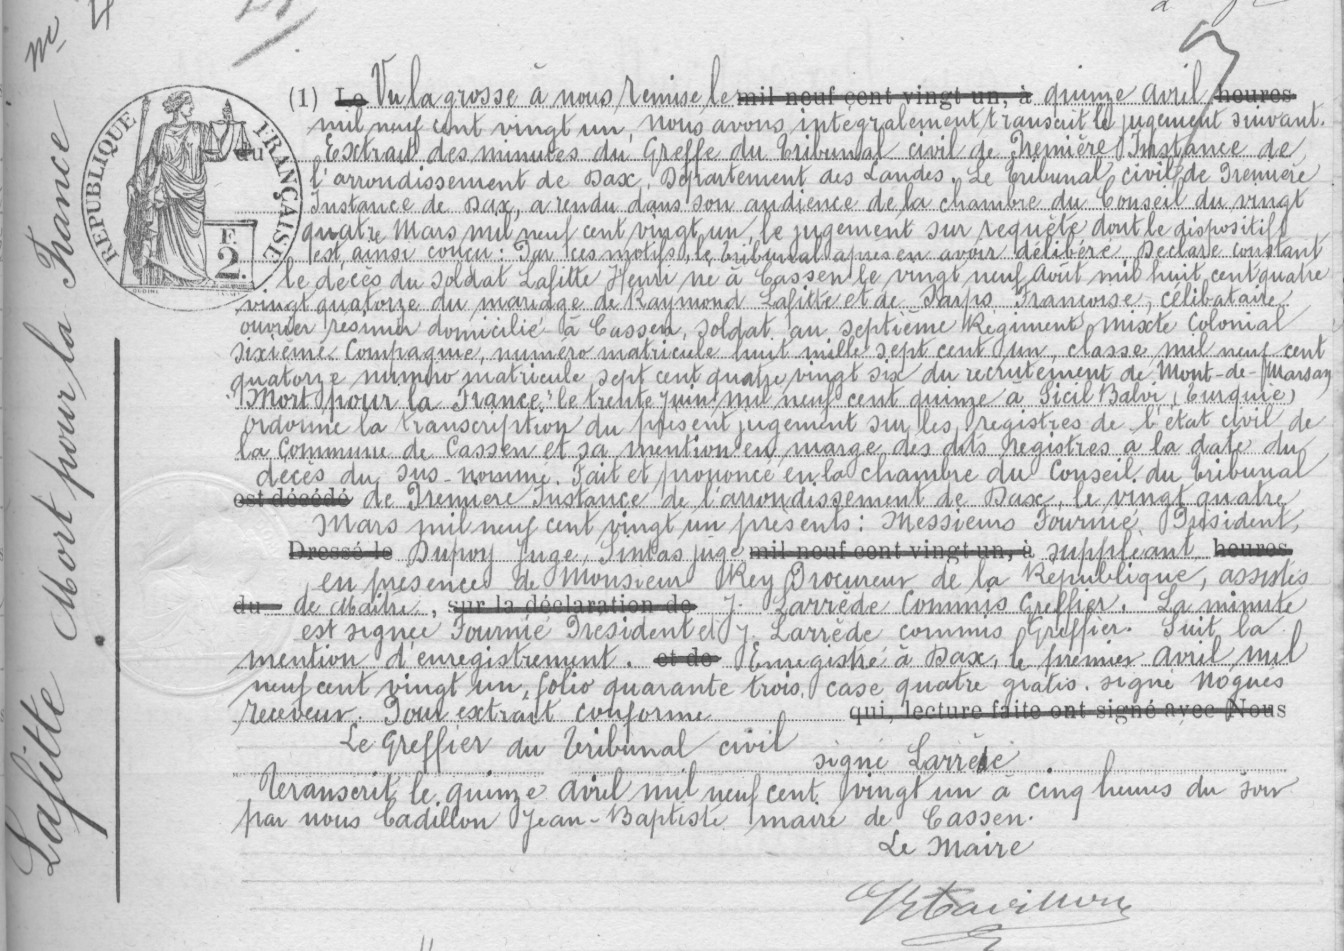 Lafitte Mort pour la France
RÉPUBLIQUE FRANÇAISE
F.
2.
(1) Le Vu la grosse à nous remise le mil neuf cent vingt un, à quinze avril heures
mil neuf cent vingt un nous avons integralement transcrit le jugement suivant.
du Extrait des minutes du Greffe du tribunal civil de Première Instance de
l'arrondissement de Dax, Département des Landes. Le tribunal civil de Première
Instance de Dax, a rendu dans son audience de la chambre du Conseil du vingt
quatre Mars mil neuf cent vingt un, le jugement sur requête dont le dispositif
est ainsi conçu : Par ces motifs, le tribunal après en avoir délibéré, Déclare constant
le décès du soldat Lafitte Henri né à Cassen le vingt neuf août mil huit cent quatre
vingt quatorze du mariage de Raymond Lafitte et de Darps Françoise, célibataire
ouvrier résinier domicilié à Cassen, soldat au septième Régiment mixte Colonial
sixième Compagnie, numéro matricule huit mille sept cent un, classe mil neuf cent
quatorze numéro matricule sept cent quatre vingt six du recrutement de Mont-de-Marsan
"Mort pour la France" le trente juin mil neuf cent quinze à Sicil Balvi, (Turquie)
ordonne la transcription du présent jugement sur les registres de l'état civil de
la Commune de Cassen et sa mention en marge des dits registres à la date du
décès du sus-nommé. Fait et prononcé en la chambre du Conseil du tribunal
est décédé de Première Instance de l'arrondissement de Dax, le vingt quatre
Mars mil neuf cent vingt un présents : Messieurs Fournié Président,
Dressé le Dupoy Juge, Tintas juge mil neuf cent vingt un, à suppléant heures
en présence de Monsieur Rey Procureur de la République, assistés
du de Maître, sur la déclaration de J. Larrède Commis Greffier. La minute
est signée Fournié Président et J. Larrède commis Greffier. Suit la
mention d'enregistrement. et de Enregistré à Dax, le premier avril mil
neuf cent vingt un, folio quarante trois, case quatre gratis. signé Nogues
receveur. Pour extrait conforme qui, lecture faite ont signé avec Nous
Le Greffier du tribunal civil
signé Larrède
Transcrit le quinze avril mil neuf cent vingt un à cinq heures du soir
par nous Cadillon Jean-Baptiste maire de Cassen.
Le Maire